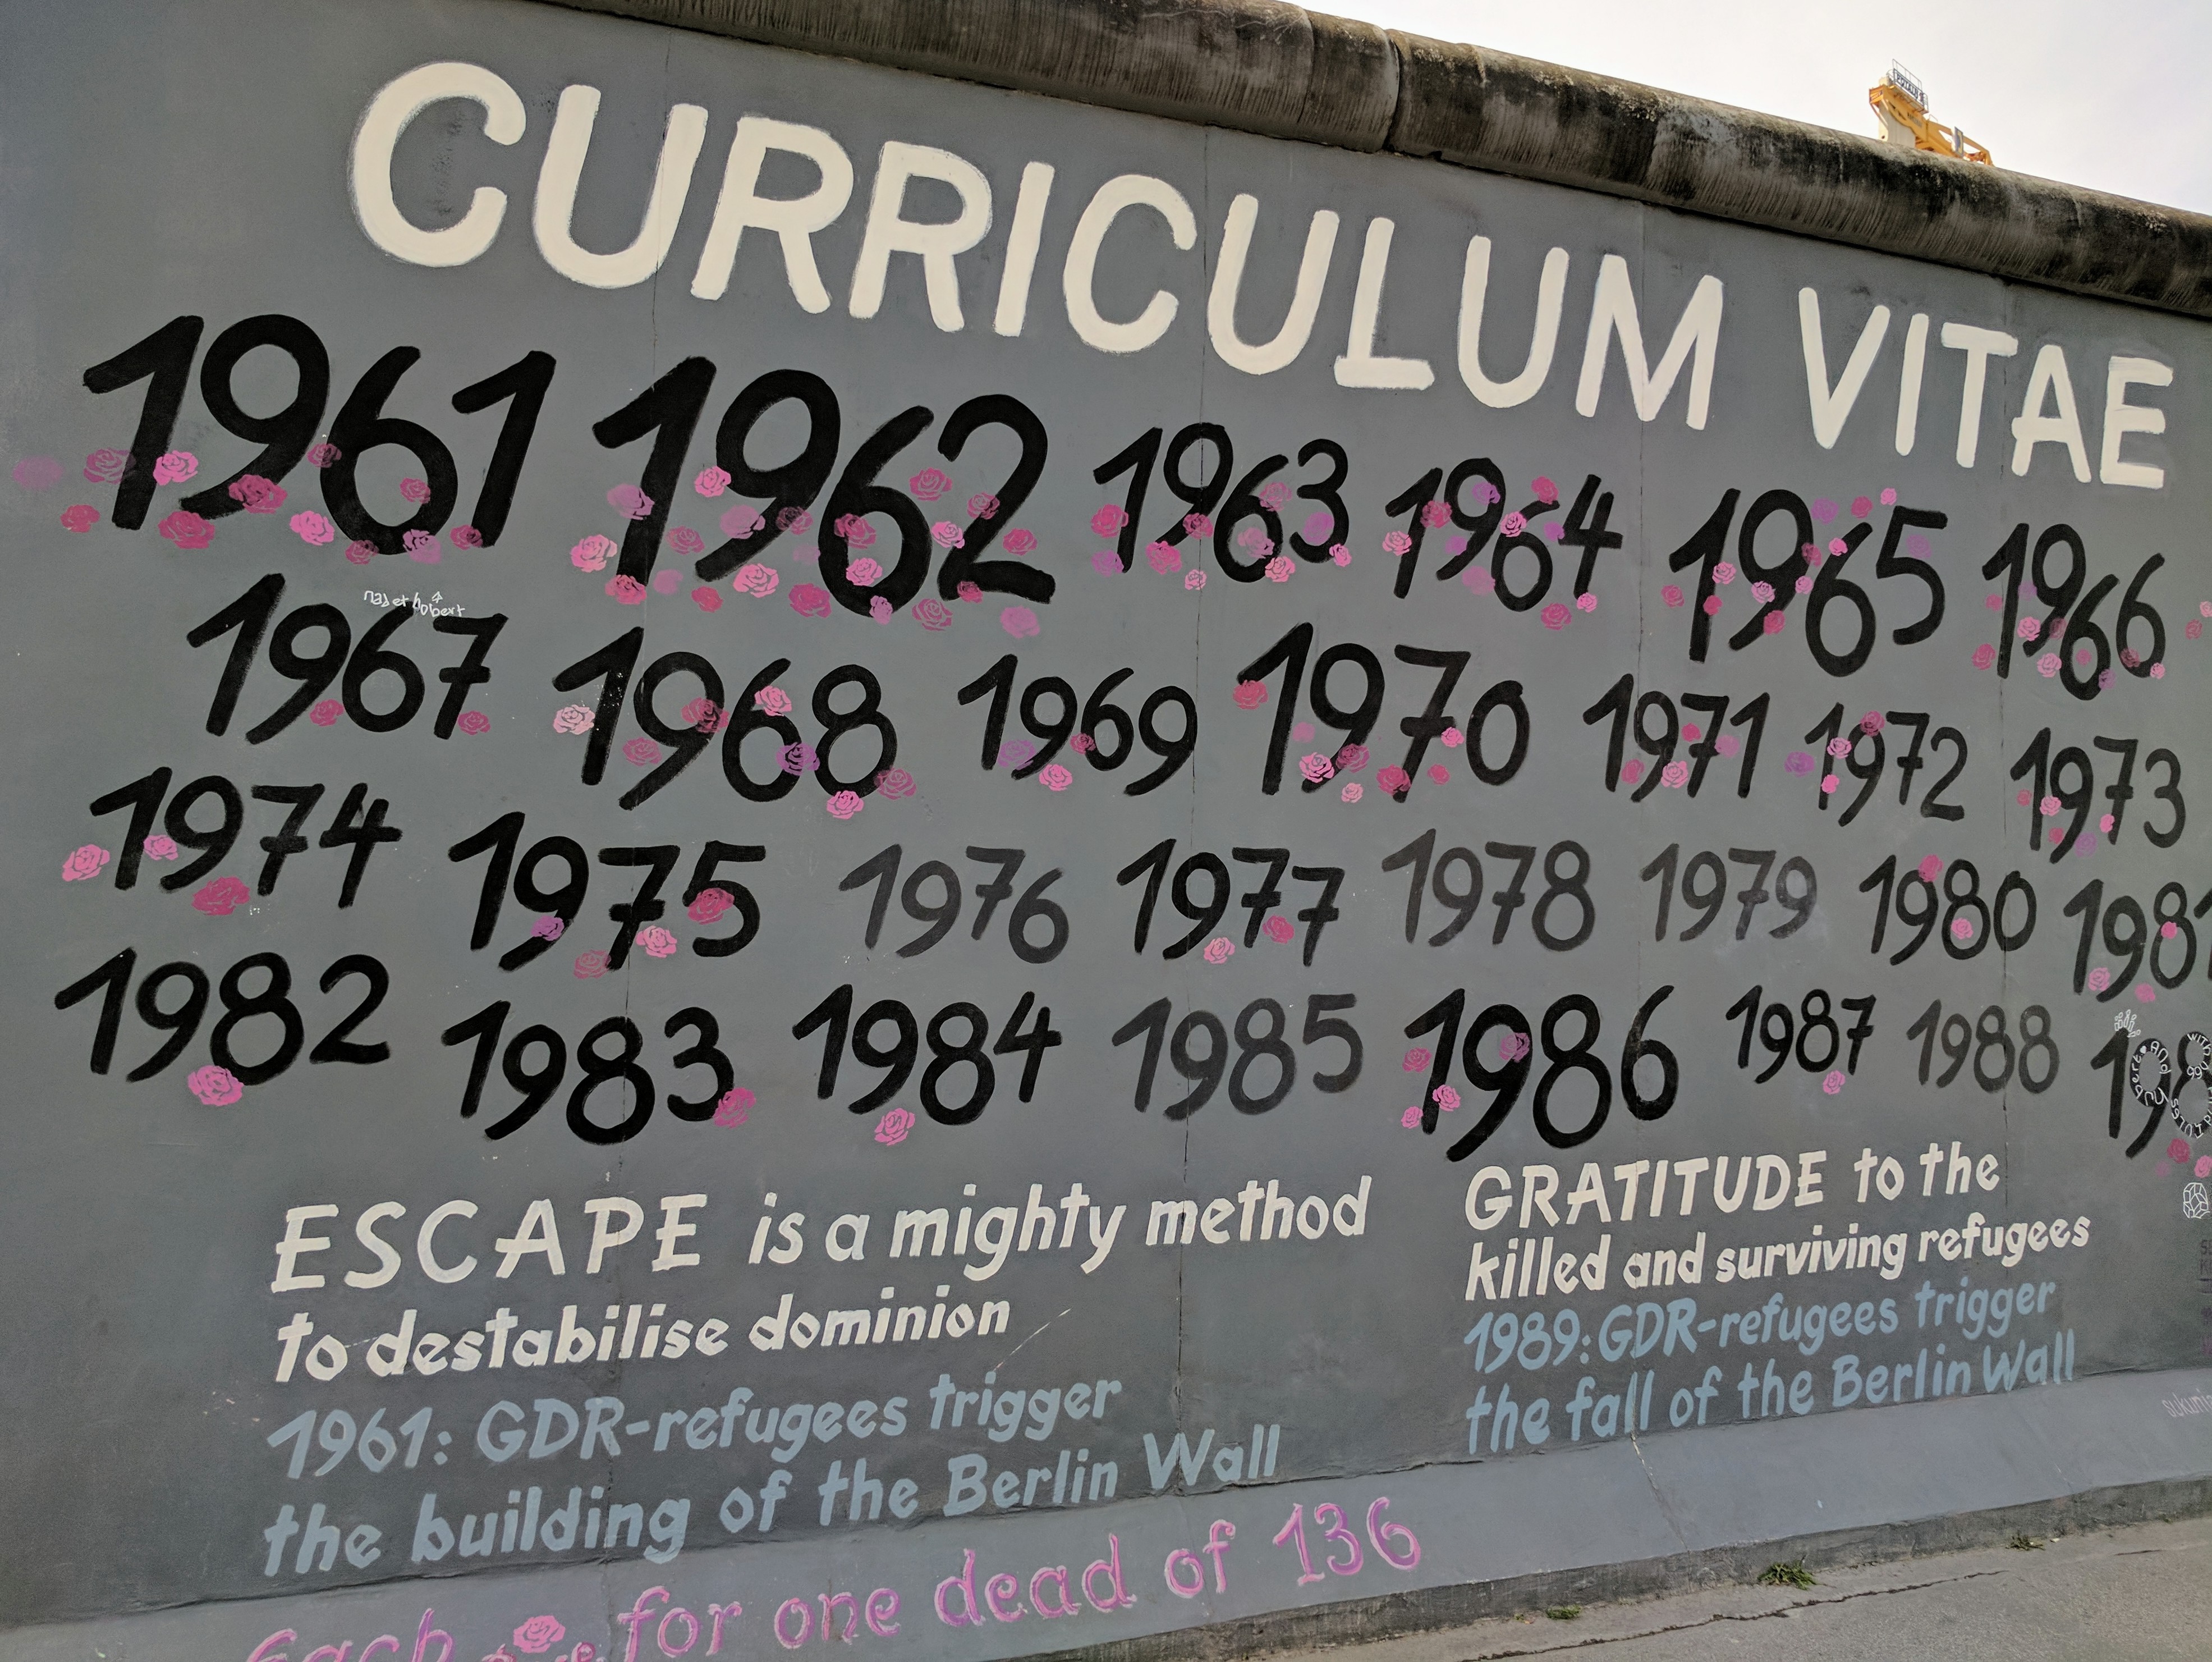 CURRICULUM VITAE
1961 1962 1963 1964 1965 1966
1967 1968 1969 1970 1971 1972 1973
1974 1975 1976 1977 1978 1979 1980 1981
1982 1983 1984 1985 1986 1987 1988 198
ESCAPE is a mighty method
to destabilise dominion
1961: GDR-refugees trigger
the building of the Berlin Wall
GRATITUDE to the
killed and surviving refugees
1989: GDR-refugees trigger
the fall of the Berlin Wall
Each rose for one dead of 136